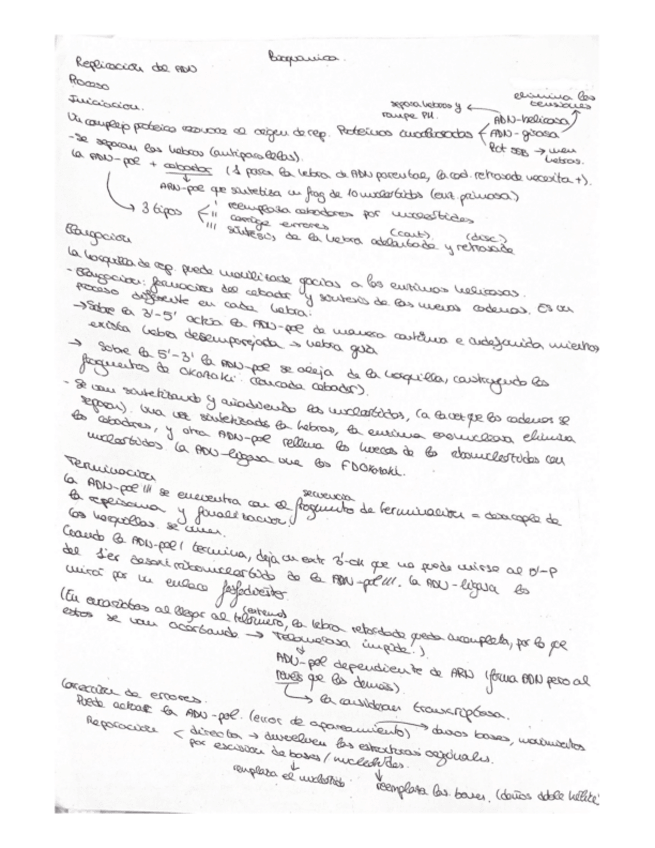 Bioquímica.
Replicación del ADN
Proceso
Iniciación.
separa hebras y rompe PH.
elimina las tensiones
Un complejo proteico reconoce el origen de rep. Proteínas involucradas
ADN-helicasa
ADN-girasa
Prot SSB →
hebras.
- Se separan las hebras (antiparalelas).
La ADN-pol + cebador (1 para la hebra de ADN parental, la cad. retrasada necesita +).
ARN-pol que sintetiza un frag de 10 nucleótidos (enz. primasa)
→ 3 tipos
I reemplaza cebadores por nucleótidos
II corrige errores
(cont) (disc)
III síntesis, de la hebra adelantada y retrasada
Elongación
La horquilla de rep. puede movilizarse gracias a las enzimas helicasas.
- Elongación: formación del cebador y síntesis de las nuevas cadenas. Es un
proceso diferente en cada hebra:
→ Sobre la 3'-5' actúa la ADN-pol de manera continua e indefinida mientras
exista hebra desemparejada → hebra guía
→ Sobre la 5'-3' la ADN-pol se aleja de la horquilla, construyendo los
fragmentos de Okazaki. (en cada cebador).
- Se van sintetizando y añadiendo los nucleótidos, (a la vez que las cadenas se
separan). Una vez sintetizada la hebra, la enzima exonucleasa elimina
los cebadores, y otra ADN-pol rellena los huecos de los ribonucleótidos con
nucleótidos. La ADN-ligasa une los F.D Okazaki.
Terminación
secuencia
La ADN-pol III se encuentra con el fragmento de terminación = desacople de
la replisoma y finalización
Las horquillas se unen.
Cuando la ADN-pol I termina, deja un extr 3'-OH que no puede unirse al 5'-P
del 1er desoxirribonucleótido de la ADN-pol III. La ADN-ligasa los
unirá por un enlace fosfodiéster
(extremo)
(En eucariotas al llegar al telómero, la hebra retardada queda incompleta, por lo que
estos se van acortando → Telomerasa impide.)
ADN-pol dependiente de ARN (forma ADN pero al
revés que los demás).
→ la consideran transcriptasa.
Corrección de errores.
Puede actuar la ADN-pol. (error de apareamiento) → bases,
Reparación
directa → devuelven las estructuras originales.
por escisión de bases / nucleótidos.
remplaza el nucleótido
reemplaza las bases. (daños doble hélice)